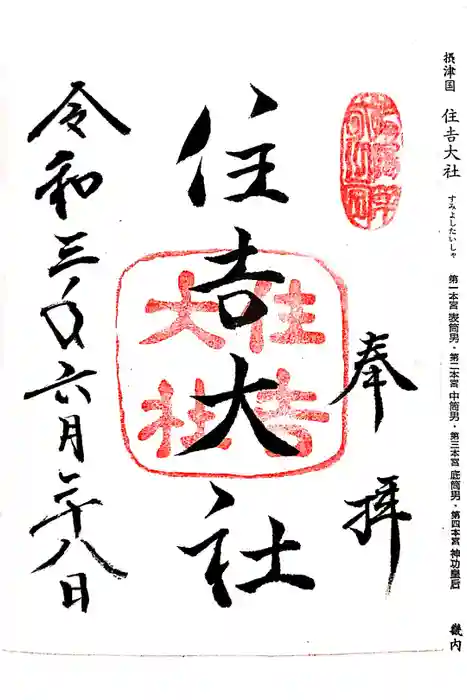 摂津国 住吉大社 すみよしたいしゃ 第一本宮 表筒男・第二本宮 中筒男・第三本宮 底筒男・第四本宮 神功皇后 畿内
奉拝
住吉大社
住吉
大社
令和三年六月二十八日